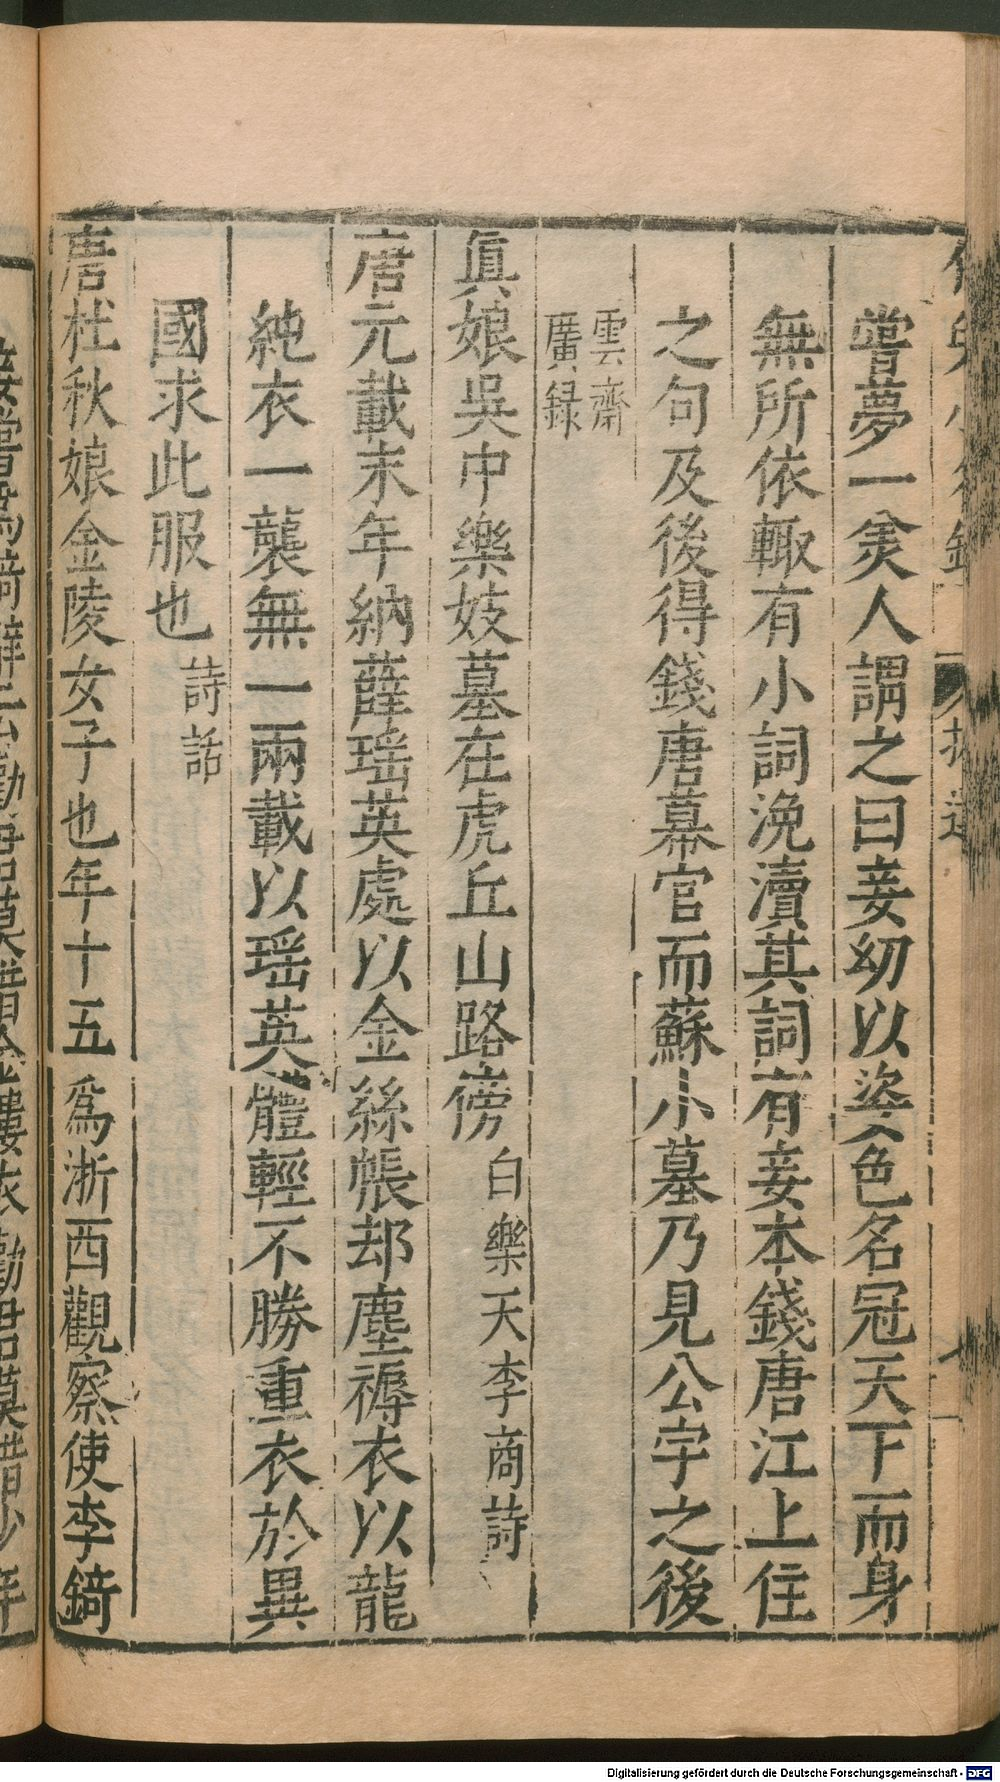 嘗夢一美人謂之曰妾幼以姿色名冠天下而身
無所依輙有小詞浼瀆其詞有妾本錢唐江上住
之句及後得錢唐幕官而蘇小墓乃見公字之後
雲齋
廣録
眞娘吳中樂妓墓在虎丘山路傍白樂天李商詩
唐元載末年納薛瑶英處以金絲帳却塵褥衣以龍
純衣一襲無一兩載以瑶英體輕不勝重衣於異
國求此服也詩話
唐杜秋娘金陵女子也年十五爲浙西觀察使李錡
Digitalisierung gefördert durch die Deutsche Forschungsgemeinschaft - DFG